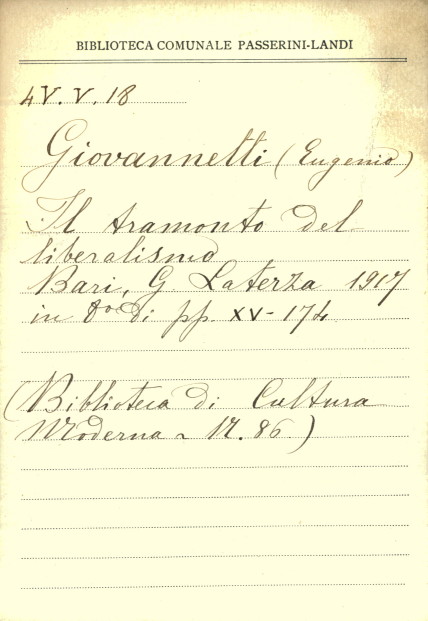 BIBLIOTECA COMUNALE PASSERINI-LANDI
4V.V.18
Giovannetti (Eugenio)
Il tramonto del
liberalismo
Bari, G. Laterza 1917
in 8º di pp. XV-174
(Biblioteca di Cultura
Moderna - N. 86.)